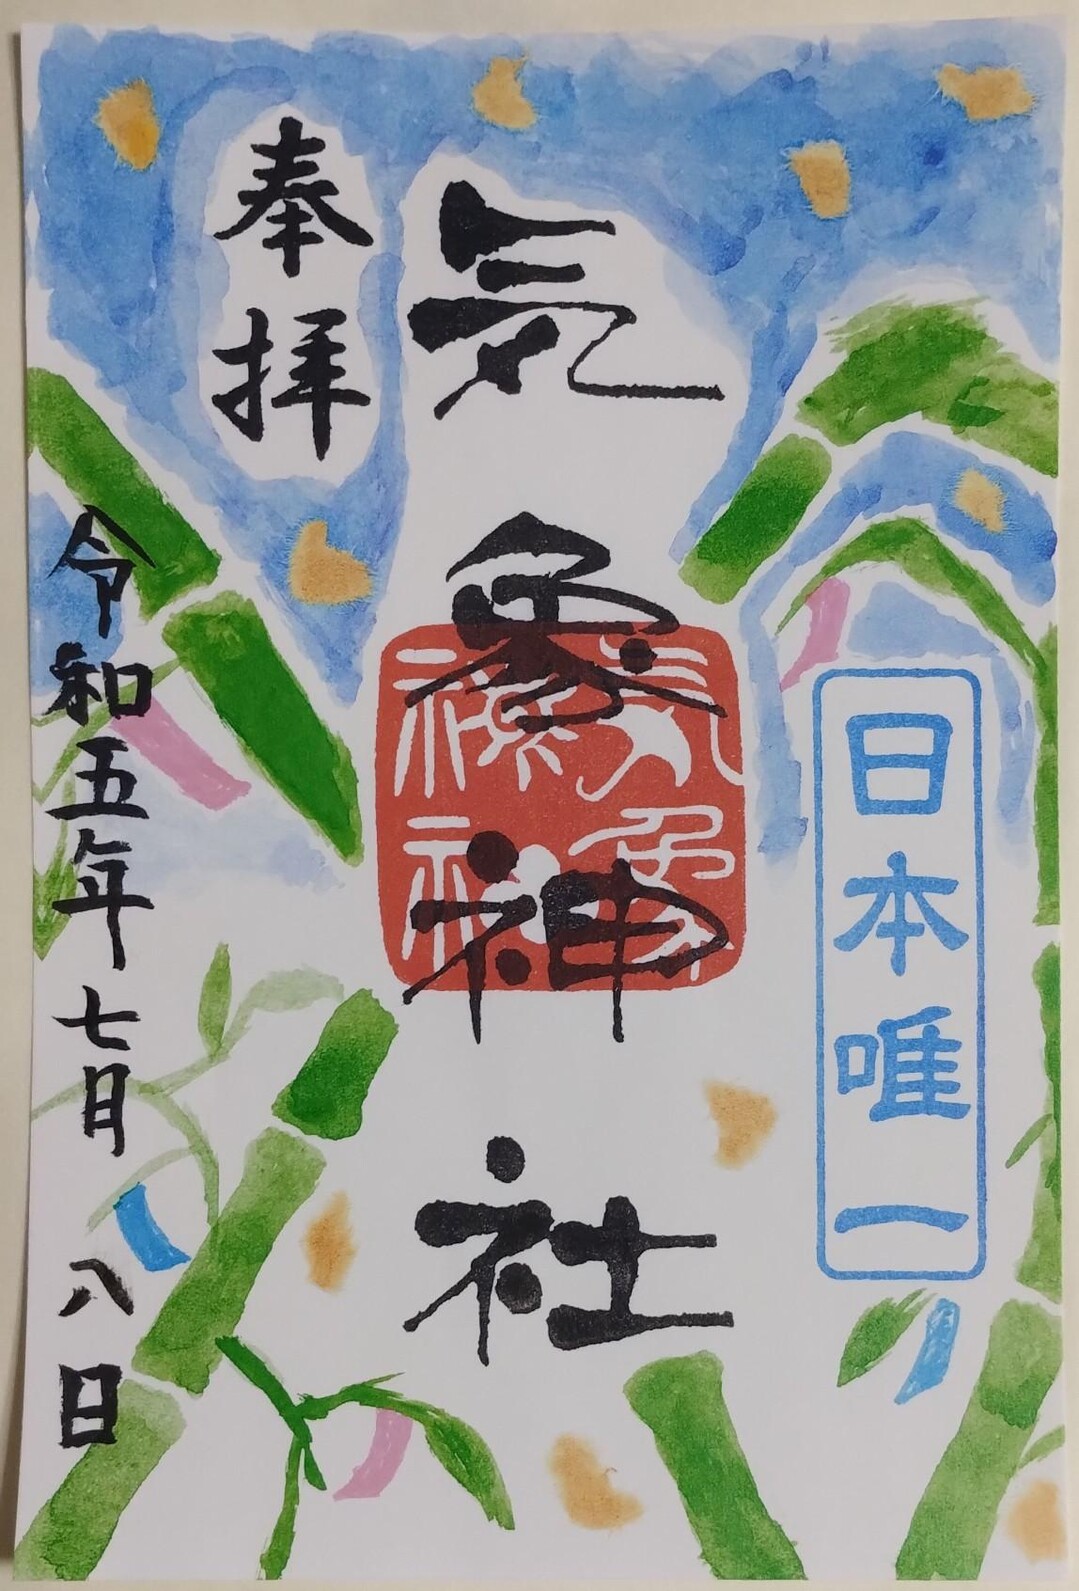 日本唯一
気象神社
気象神社
奉拝
令和五年七月八日